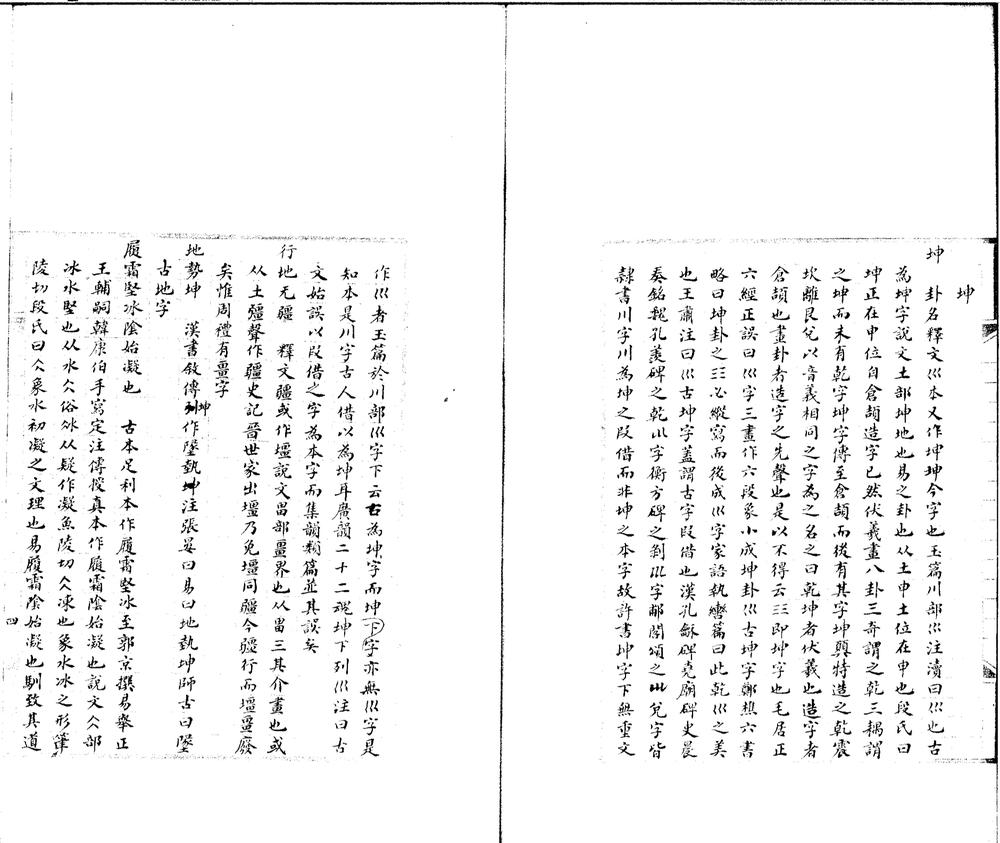 坤
坤　卦名釋文巛本又作坤坤今字也玉篇川部巛注瀆曰巛也古
為坤字說文土部坤地也易之卦也从土申土位在申也段氏曰
坤正在申位自倉頡造字已然伏羲畫八卦三奇謂之乾三耦謂
之坤而未有乾字坤字傳至倉頡而後有其字坤㒹特造之乾震
坎離艮兌以音義相同之字為之名之曰乾坤者伏羲也造字者
倉頡也畫卦者造字之先聲也是以不得云☷即坤字也毛居正
六經正誤曰巛字三畫作六段象小成坤卦巛古坤字鄭樵六書
略曰坤卦之☷必縱寫而後成巛字家語執轡篇曰此乾巛之美
也王肅注曰巛古坤字蓋謂古字叚借也漢孔龢碑堯廟碑史晨
奏銘魏孔羨碑之乾巛字衡方碑之剝巛字郙閣頌之巛兌字皆
隸書川字川為坤之叚借而非坤之本字故許書坤字下無重文
作巛者玉篇於川部巛字下云古為坤字而坤下字亦無巛字是
知本是川字古人借以為坤耳廣韻二十二魂坤下列巛注曰古
文始誤以叚借之字為本字而集韻類篇並其誤矣
行地无疆　釋文疆或作壃說文畕部畺界也从畕三其介畫也或
从土彊聲作疆史記晉世家出壃乃免壃同疆今疆行而壃畺廢
矣惟周禮有畺字
地勢坤　漢書敘傳坤作墬埶注張晏曰易曰地埶坤師古曰墬
古地字
履霜堅冰陰始凝也　古本足利本作履霜堅冰至郭京撰易舉正
王輔嗣韓康伯手寫定注傳授真本作履霜陰始凝也說文仌部
冰水堅也从水仌俗冰从疑作凝魚陵切仌凍也象水冰之形筆
陵切段氏曰仌象水初凝之文理也易履霜陰始凝也馴致其道
四